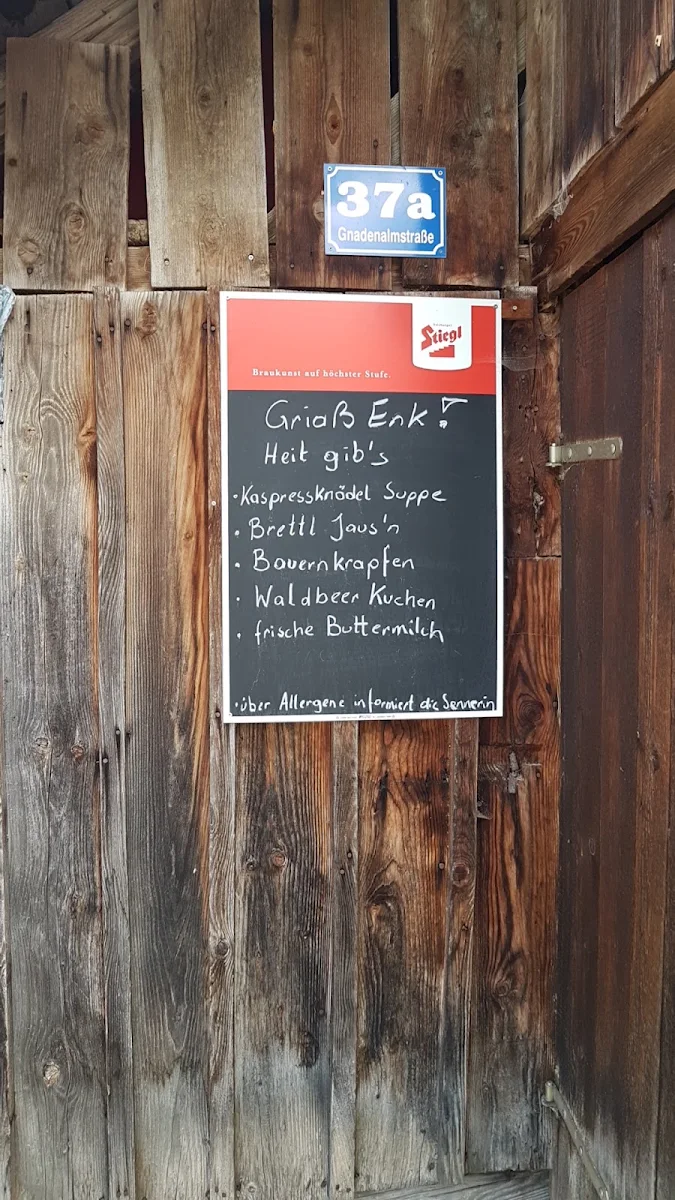 37a
Gnadenalmstraße
Stiegl
Braukunst auf höchster Stufe.
Griaß Enk!
Heit gib's
· Kaspressknödel Suppe
· Brettl Jaus'n
· Bauernkrapfen
· Waldbeer Kuchen
· frische Buttermilch
· über Allergene informiert die Sennerin